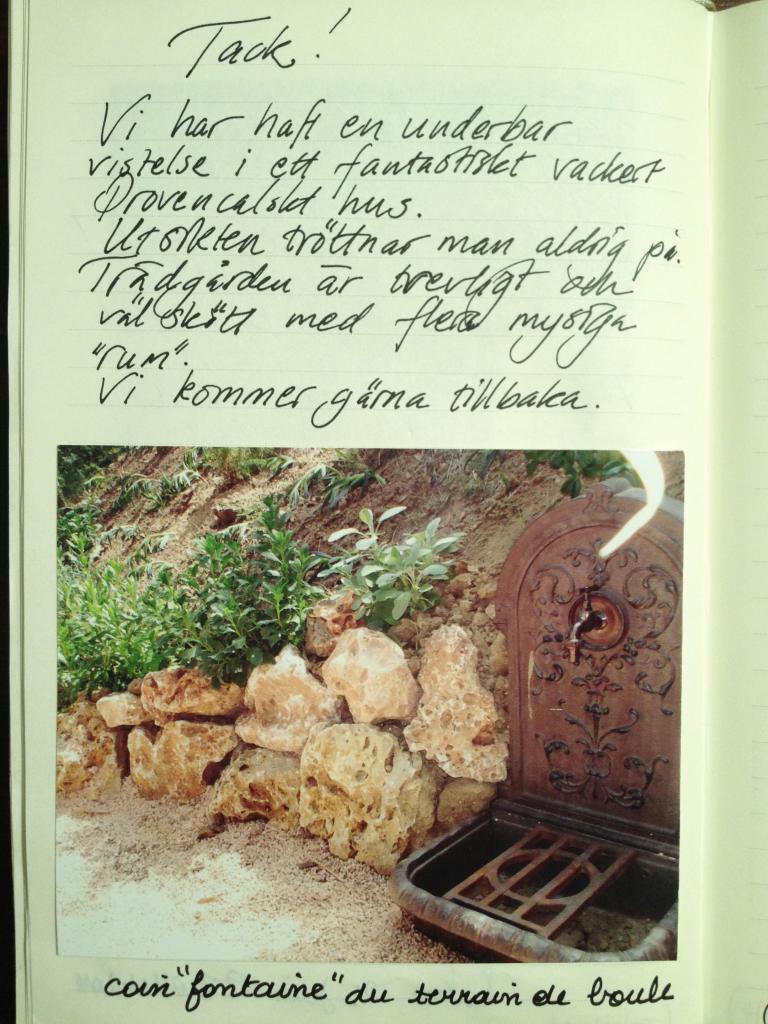 Tack!
Vi har haft en underbar
vistelse i ett fantastiskt vackert
Provencalskt hus.
Utsikten tröttnar man aldrig på.
Trädgården är trevligt och
väl skött med flera mysiga
"rum".
Vi kommer gärna tillbaka.
coin "fontaine" du terrain de boule